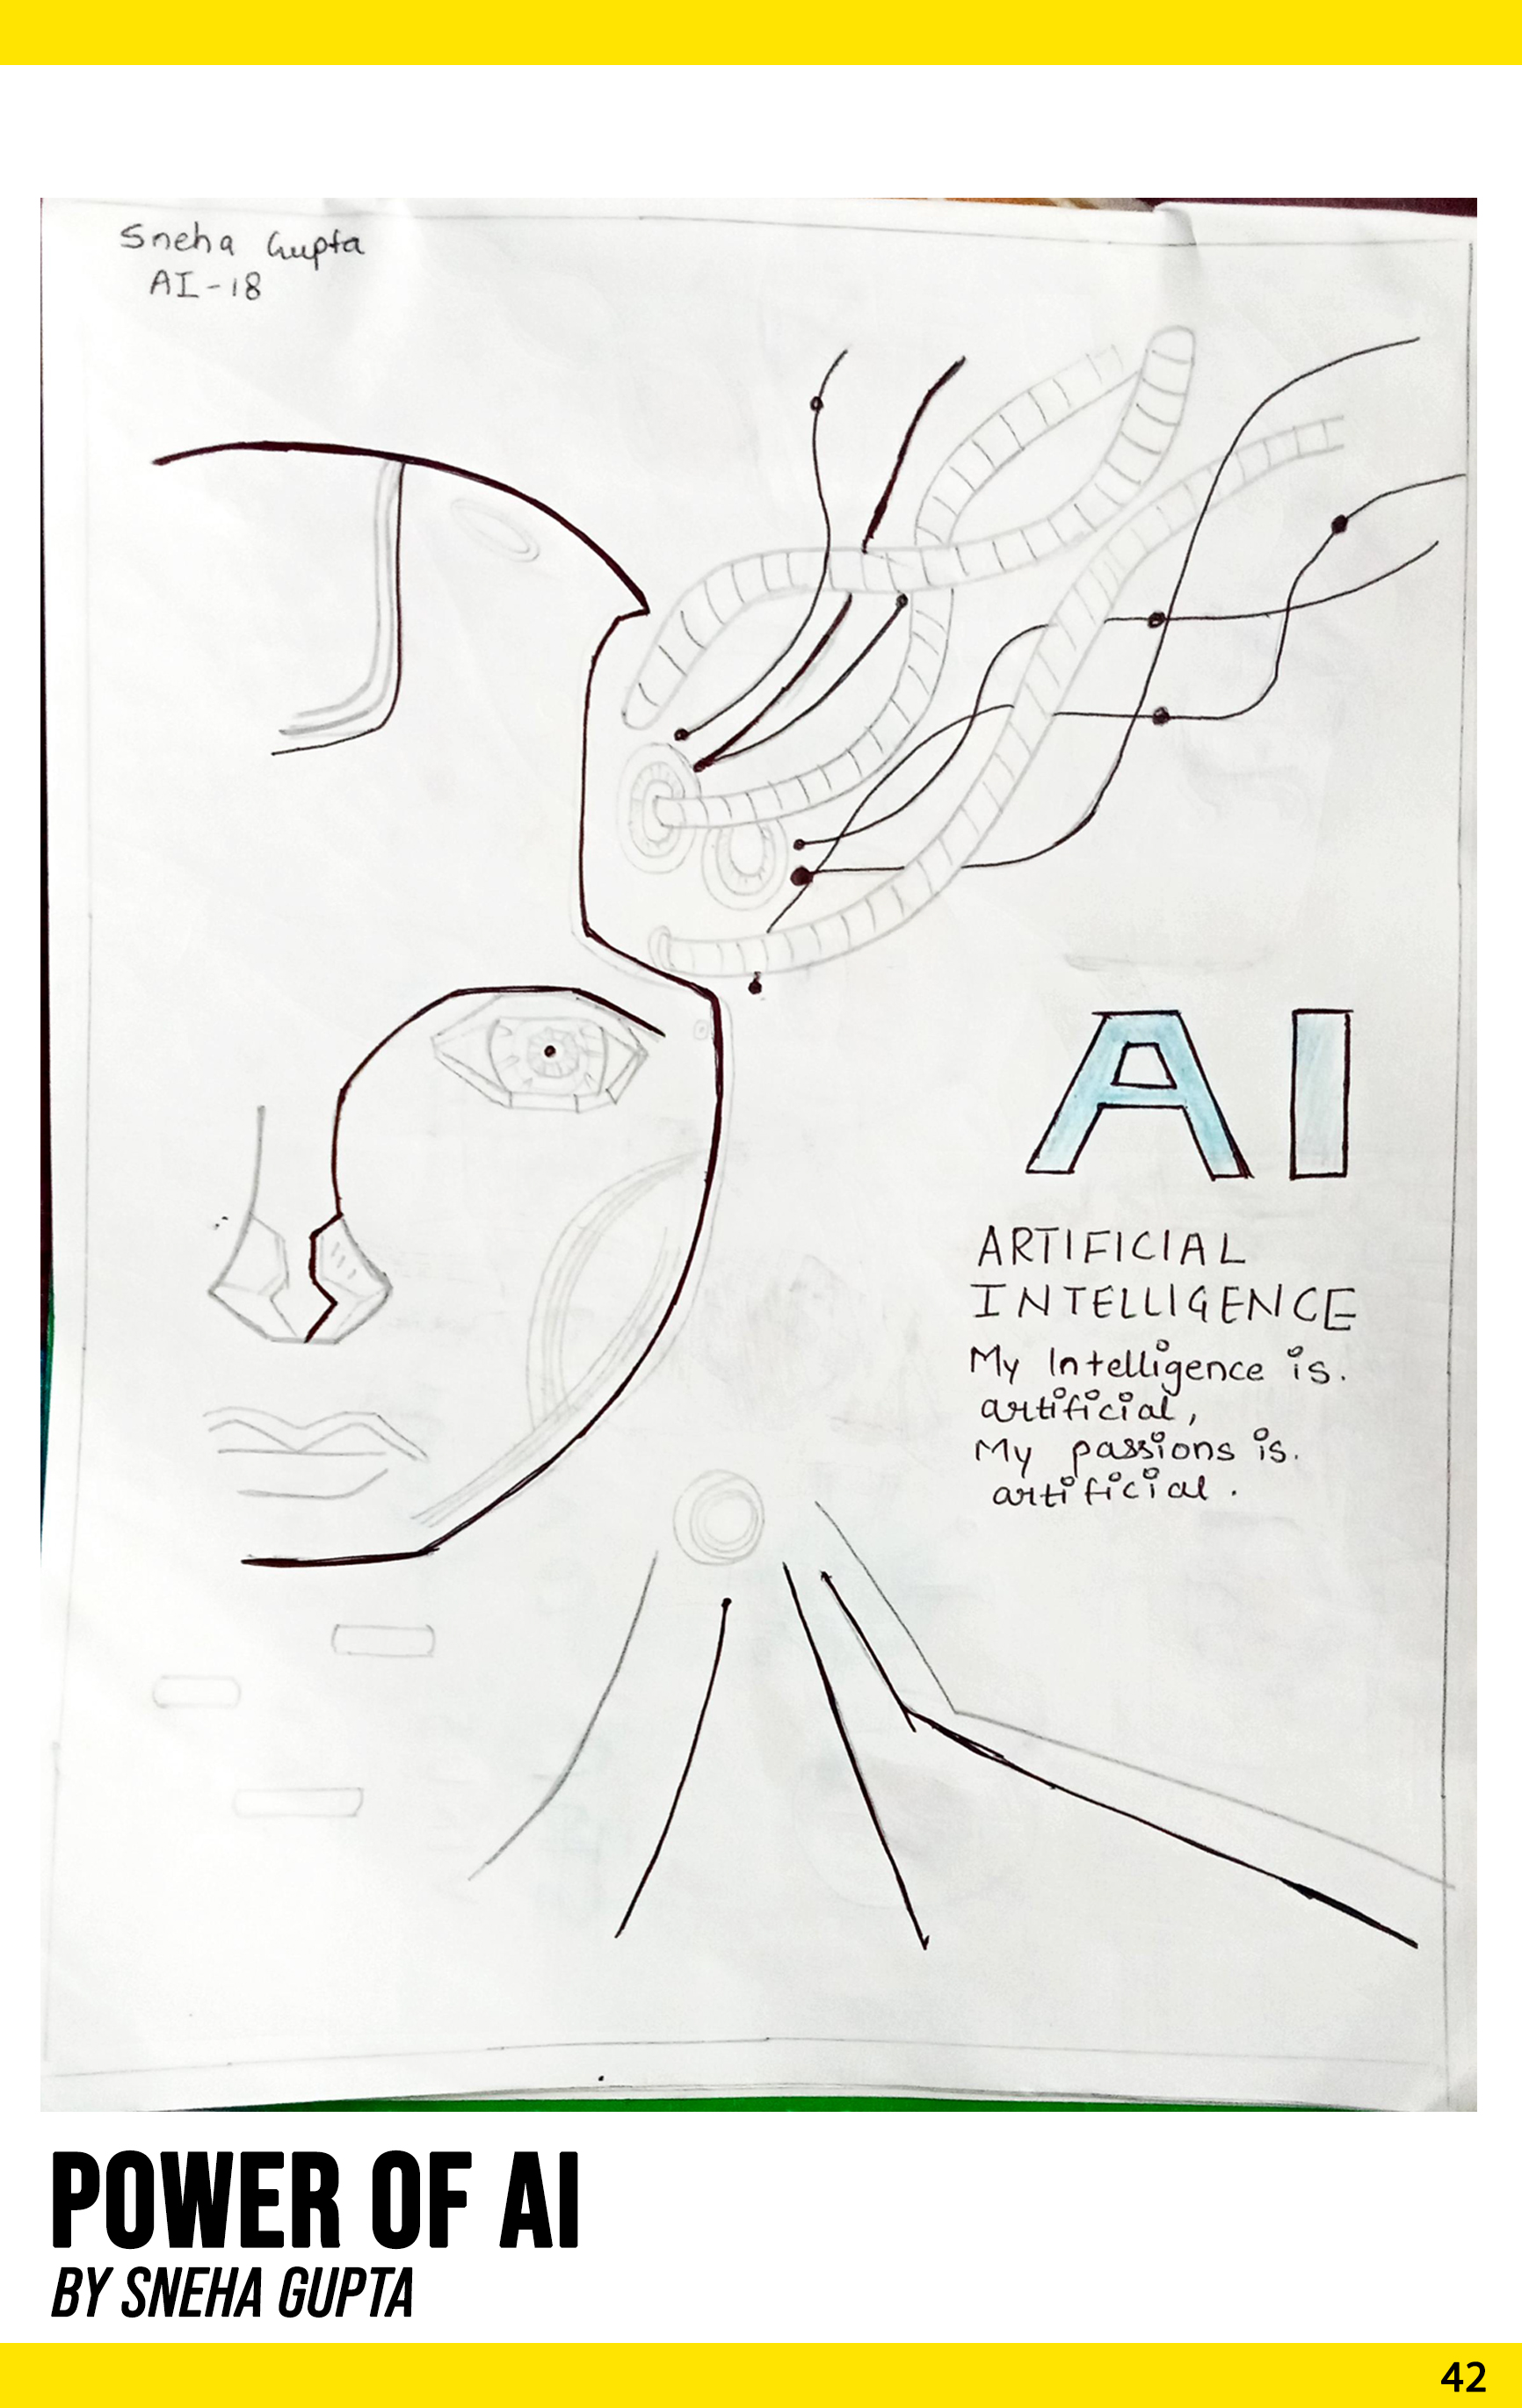 Sneha Gupta
AI-18
AI
ARTIFICIAL
INTELLIGENCE
My Intelligence is.
artificial,
My passions is.
artificial.
POWER OF AI
BY SNEHA GUPTA
42